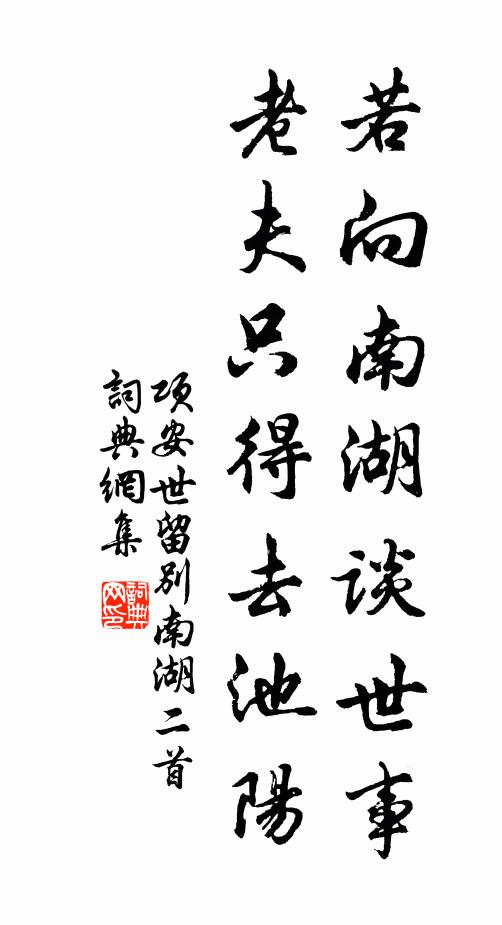 若向南湖談世事
老夫只得去池陽
項安世留別南湖二首
詞典網集
詞典
網印